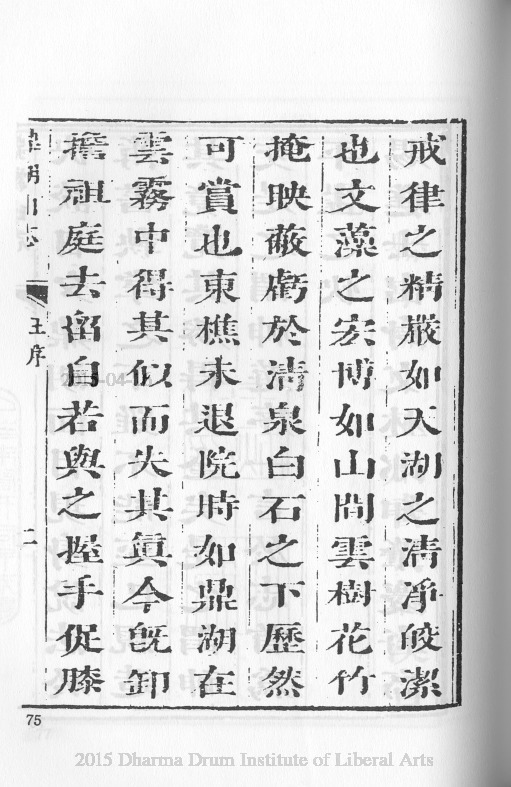 戒律之精嚴如天湖之清淨皎潔
也文藻之宏博如山間雲樹花竹
掩映蔽虧於清泉白石之下歷然
可賞也東樵未退院時如鼎湖在
雲霧中得其似而失其眞今旣卸
擔祖庭去留自若與之握手促膝
鼎湖山志
王序
二
75
2015 Dharma Drum Institute of Liberal Arts